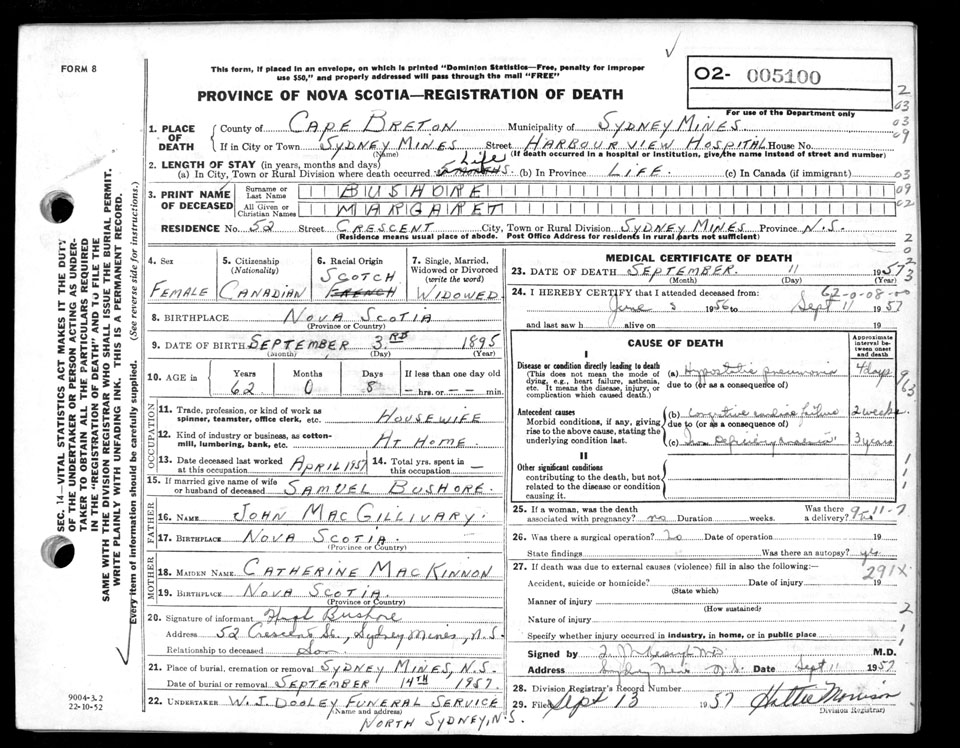 FORM 8
This form, if placed in an envelope, on which is printed "Dominion Statistics—Free, penalty for improper
use $50," and properly addressed will pass through the mail "FREE"
O2- 005100
For use of the Department only
PROVINCE OF NOVA SCOTIA—REGISTRATION OF DEATH
1. PLACE OF DEATH County of CAPE BRETON Municipality of SYDNEY MINES
If in City or Town SYDNEY MINES Street HARBOUR VIEW HOSPITAL House No.
(Name) (If death occurred in a hospital or institution, give the name instead of street and number)
2. LENGTH OF STAY (in years, months and days)
(a) In City, Town or Rural Division where death occurred Life (b) In Province LIFE. (c) In Canada (if immigrant)
3. PRINT NAME OF DECEASED Surname or Last Name BUSHORE
All Given or Christian Names MARGARET
RESIDENCE No. 52 Street CRESCENT City, Town or Rural Division SYDNEY MINES Province N.S.
(Residence means usual place of abode. Post Office Address for residents in rural parts not sufficient)
4. Sex FEMALE
5. Citizenship (Nationality) CANADIAN
6. Racial Origin SCOTCH FRENCH
7. Single, Married, Widowed or Divorced (write the word) WIDOWED
8. BIRTHPLACE NOVA SCOTIA
(Province or Country)
9. DATE OF BIRTH SEPTEMBER 3RD 1895
(Month) (Day) (Year)
10. AGE in Years Months Days If less than one day old
62 0 8 hrs. or min.
OCCUPATION
11. Trade, profession, or kind of work as spinner, teamster, office clerk, etc. HOUSEWIFE
12. Kind of industry or business, as cotton-mill, lumbering, bank, etc. AT HOME.
13. Date deceased last worked at this occupation APRIL 1957 14. Total yrs. spent in this occupation —
15. If married give name of wife or husband of deceased SAMUEL BUSHORE.
FATHER
16. NAME JOHN MACGILLIVARY.
17. BIRTHPLACE NOVA SCOTIA.
(Province or Country)
MOTHER
18. MAIDEN NAME CATHERINE MACKINNON
19. BIRTHPLACE NOVA SCOTIA.
(Province or Country)
20. Signature of informant Hugh Bushore
Address 52 Crescent St., Sydney Mines, N.S.
Relationship to deceased Son.
21. Place of burial, cremation or removal SYDNEY MINES, N.S.
Date of burial or removal SEPTEMBER 14TH 1957.
22. UNDERTAKER W. J. DOOLEY FUNERAL SERVICE
(Name and address)
NORTH SYDNEY, N.S.
MEDICAL CERTIFICATE OF DEATH
23. DATE OF DEATH SEPTEMBER. 11 1957
(Month) (Day)
62-0-08-00
24. I HEREBY CERTIFY that I attended deceased from:
June 3 1956 to Sept 11 1957
and last saw h alive on 19
CAUSE OF DEATH
Approximate interval between onset and death
I
Disease or condition directly leading to death
(This does not mean the mode of dying, e.g., heart failure, asthenia, etc. It means the disease, injury, or complication which caused death.)
(a) Hypostatic pneumonia 4 days
due to (or as a consequence of)
Antecedent causes
Morbid conditions, if any, giving rise to the above cause, stating the underlying condition last.
(b) Congestive cardiac failure 2 weeks
due to (or as a consequence of)
(c) Iron Deficiency Anaemia 3 years
II
Other significant conditions
contributing to the death, but not related to the disease or condition causing it.
25. If a woman, was the death associated with pregnancy? no Duration weeks. Was there a delivery? no
9-11-7
26. Was there a surgical operation? no Date of operation 19
State findings Was there an autopsy? yes
27. If death was due to external causes (violence) fill in also the following:—
291X
Accident, suicide or homicide? Date of injury 19
(State which)
Manner of injury
(How sustained)
Nature of injury
Specify whether injury occurred in industry, in home, or in public place
Signed by M.D.
Address Sydney Mines N.S. Date Sept 11 1957
28. Division Registrar's Record Number
29. Filed Sept 13 1957 Hattie Morrison
Division Registrar)
SEC. 14—VITAL STATISTICS ACT MAKES IT THE DUTY
OF THE UNDERTAKER OR PERSON ACTING AS UNDER-
TAKER TO OBTAIN ALL THE PARTICULARS REQUIRED
IN THE "REGISTRATION OF DEATH" AND TO FILE THE
SAME WITH THE DIVISION REGISTRAR WHO SHALL ISSUE THE BURIAL PERMIT.
WRITE PLAINLY WITH UNFADING INK. THIS IS A PERMANENT RECORD.
Every item of information should be carefully supplied. (See reverse side for instructions.)
9004-3.2
22-10-52
2
03
03
09
03
09
02
2
0
2
3
9
63
1
1
1
2
1